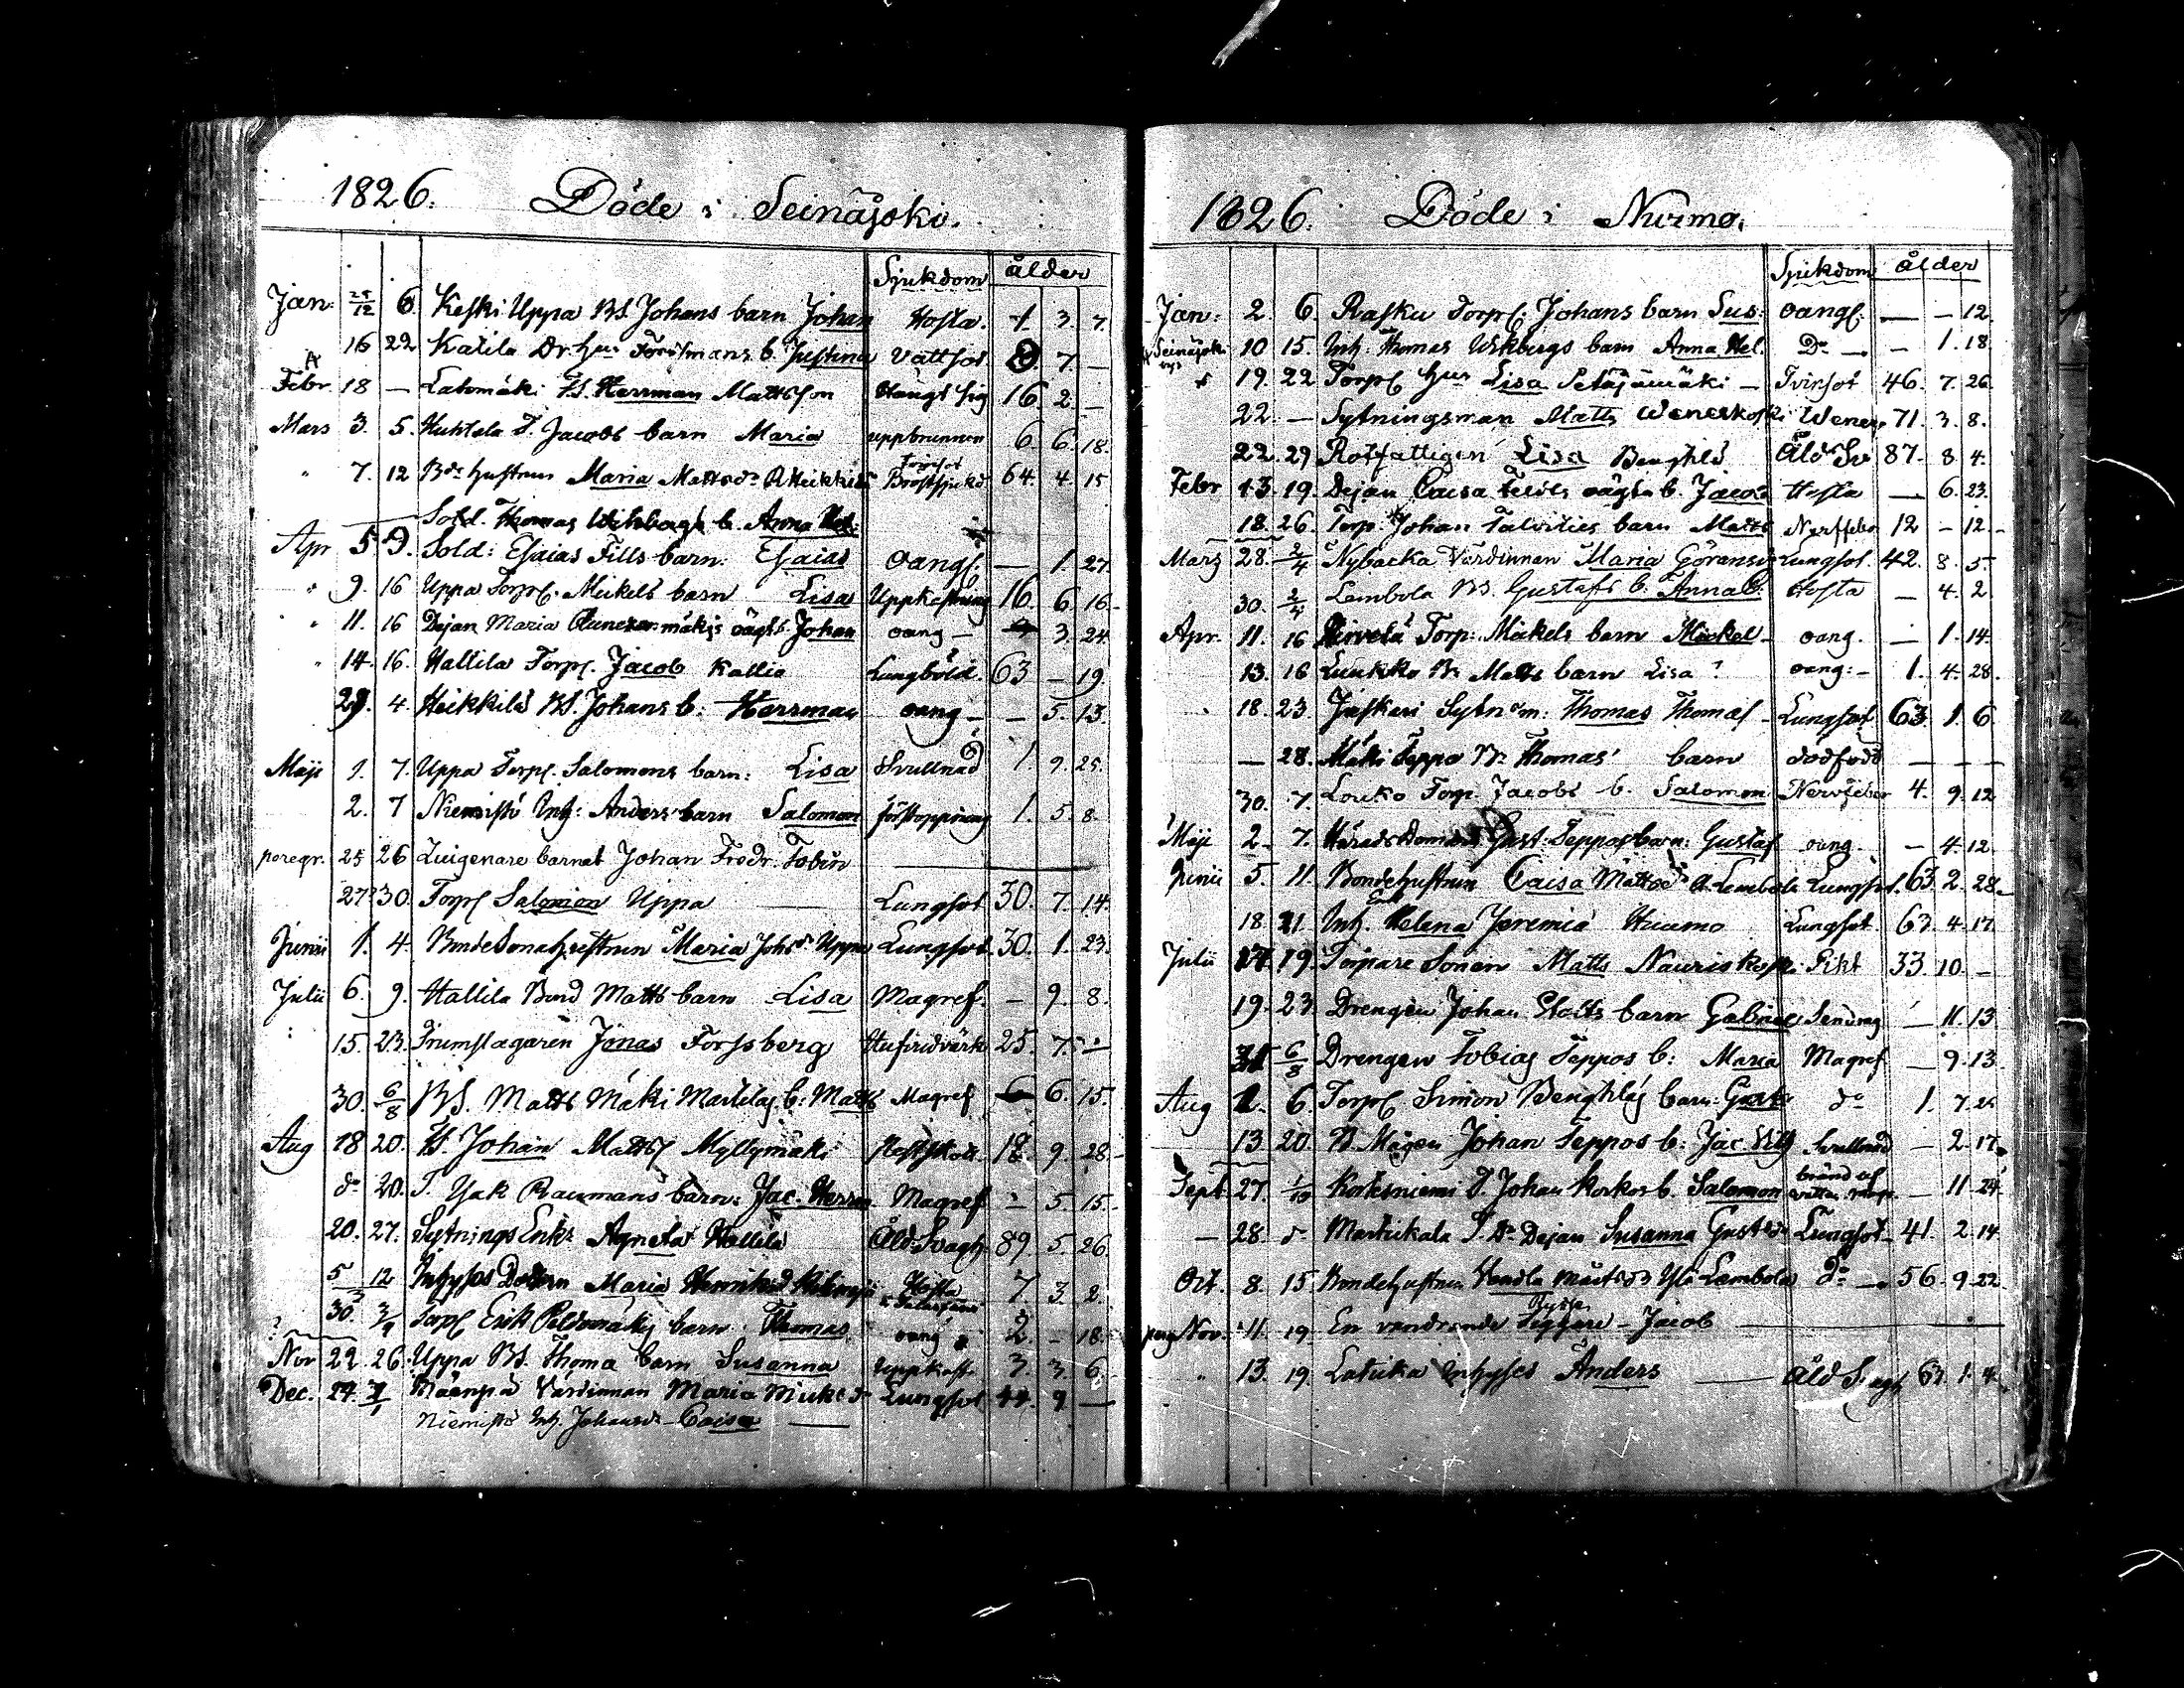 1826. Döde i Seinäjoki.
Sjukdom ålder
Jan: 25/12 6 Keski Uppa BS. Johans barn Johan Hosta. 1. 3. 7.
16 22 Katila Dr. hus b. Justina Vattsot 7. —
Febr 18 — Lahomäki Herrman Mattsson Hängt sig 16. 2. —
Mars 3. 5. Huhtala T. Jacobs barn Maria uppbrunnen 6. 6. 18.
" 7. 12 Bde hustrun Maria Mattsdr Bröstsjukd 64. 4. 15
Sold. Thomas b. Anna Hel:
Apr 5 9. Sold: Esaias Fills barn: Esaias Oangf. — 1. 27.
" 9. 16 Uppa Torpf. Mickels barn Lisa Uppkastning 16. 6. 16.
" 11. 16 Dejan Maria mäkis oägt b. Johan oang — 3. 24
" 14. 16. Hallila Torpf. Jacob Kallio Lungböld. 63 — 19.
29. 4. Heikkilä BS. Johans b: Herrman oang — — 5. 13.
Maji 1. 7. Uppa Torpf. Salomons barn: Lisa Svullnad 1. 9. 25.
2. 7 Niemistö Inh: Anders barn Salomon förstoppning 1. 5. 8.
peregr. 25 26 Zuigenare barnet Johan Fredr. Tobin —
27 30. Torpf Salomon Uppa — Lungsot 30. 7. 14.
Junii 1. 4. Bondesonahustrun Maria Johsdr Uppa Lungsot. 30. 1. 23.
Julii 6. 9. Hallila Bond Matts barn Lisa Magref. — 9. 8.
15. 23. Trumslagaren Jonas Forssberg Hufvudvärk 25. 7. —
30. 6/8 BS. Matts Mäki Martilas b: Matts Magref 6. 15.
Aug 18 20. Johan Mattsf Myllymäki 18 9. 28.
do 20. T. Isak Raumans barn: Jac. Herrm. Magref — 5. 15.
20. 27. Sytnings Enk: Agneta Hallila Åld. Svagh. 89. 5. 26.
5 12 Inhyses Dottern Maria Hosta 7 3. 2.
30. 3/9 Torpf Erik Peldomäkis barn Thomas oang 2. — 18.
Nov 22. 26. Uppa BS. Thoma barn Susanna Uppkast. 3. 3. 6.
Dec. 24. 1/1 Mäenpä Värdinnan Maria Mickelsdr Lungsot 44. 9. —
Niemistö Inh. Johansdr Caisa —
1826. Döde i Nurmo.
Sjukdom ålder
Jan: 2. 6. Rasku Torpf. Johans barn Sus: oangf. — — 12.
Seinäjok. 10 15. Inh. Thomas barn Anna Hel. Do — — 1. 18.
19. 22 Torpf hus Lisa Setäjämäki — Tvinsot 46. 7. 26.
22. — Sytningsman Matts Weneskoski 71. 3. 8.
22. 29 Rotfattigen Lisa Benghls Åld Sv 87. 8. 4.
Febr 13. 19. Dejan Caisa oägta b. Jacob Hosta — 6. 23.
18. 26. Torp. Johan Talvities barn Matts Nervfeber 12 — 12.
Mars 28. 2/4 Nybacka Värdinnan Maria Göransdr Lungsot. 42. 8. 5.
30. 2/4 Lembola BS. Gustafs b. Anna C. Hosta — 4. 2.
Apr. 11. 16 Hirvelä Torp: Mickels barn Mickel — oang. — 1. 14.
13. 16 Luukko B. Matts barn Lisa? oang: — 1. 4. 28.
18. 23. Jaskari Sytn.m: Thomas Thomaf — Lungsot 63. 1. 6.
— 28. Mäki Seppo B: Thomas' barn dödfödd — — —
30. 7. Louko Torp. Jacobs b. Salomon Nervfeber 4. 9. 12
Maji 2. 7. Härads Gust. Seppos barn: Gustaf oang. — 4. 12.
Junii 5. 11. Bondehustrun Caisa Mattsdr A. Lembola Lungsot. 63. 2. 28.
18. 21. Inh. Helena Jeremiæ Huumo Lungsot. 63. 4. 17.
Julii 17. 19. Torpare Sonen Matts Nauriskoski Gikt 33. 10. —
19. 23. Drengen Johan barn Gabriel — 11. 13
31 6/8 Drengen Tobias Seppos b: Maria Magref — 9. 13.
Aug 2. 6. Torpf Simon Benghlas barn: Gust. do 1. 7. 25
13. 20. B Mågen Johan Seppos b: Jac. Svullnad — 2. 17.
Sept 27. 1/10 Korkesniemi T. Johan Korkos b. Salomon bränd af — 11 24.
— 28. do Martikala T. Dr Dejan Susanna Gustdr Lungsot — 41. 2. 14.
Oct. 8. 15 Bondehustrun Mattsdr Yli Lembola do — 56. 9. 22.
Ryska
pereg Nov. 11. 19. En vandrande Tiggare — Jacob —
" 13. 19. Latuka Inhyses Anders — Åld Svagh 63. 1. 4.